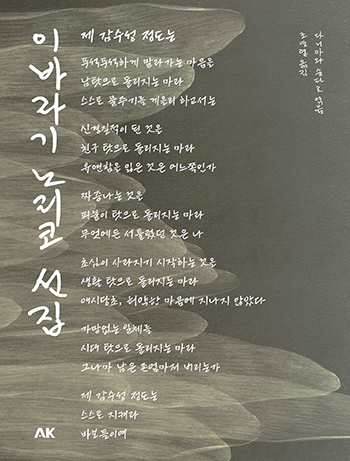 이바라기 노리코 선집
다니카와 슌타로 엮음
조영렬 옮김
제 감수성 정도는
푸석푸석하게 말라가는 마음을
남 탓으로 돌리지는 마라
스스로 물주기를 게을리 하고서는
신경질적이 된 것을
친구 탓으로 돌리지는 마라
유연함을 잃은 것은 어느 쪽인가
짜증나는 것을
피붙이 탓으로 돌리지는 마라
무엇에든 서툴렀던 것은 나
초심이 사라지기 시작하는 것을
생활 탓으로 돌리지는 마라
애시당초, 허약한 마음에 지나지 않았다
가망없는 일체를
시대 탓으로 돌리지는 마라
그나마 남은 존엄마저 버리는가
제 감수성 정도는
스스로 지켜라
바보들이여
AK